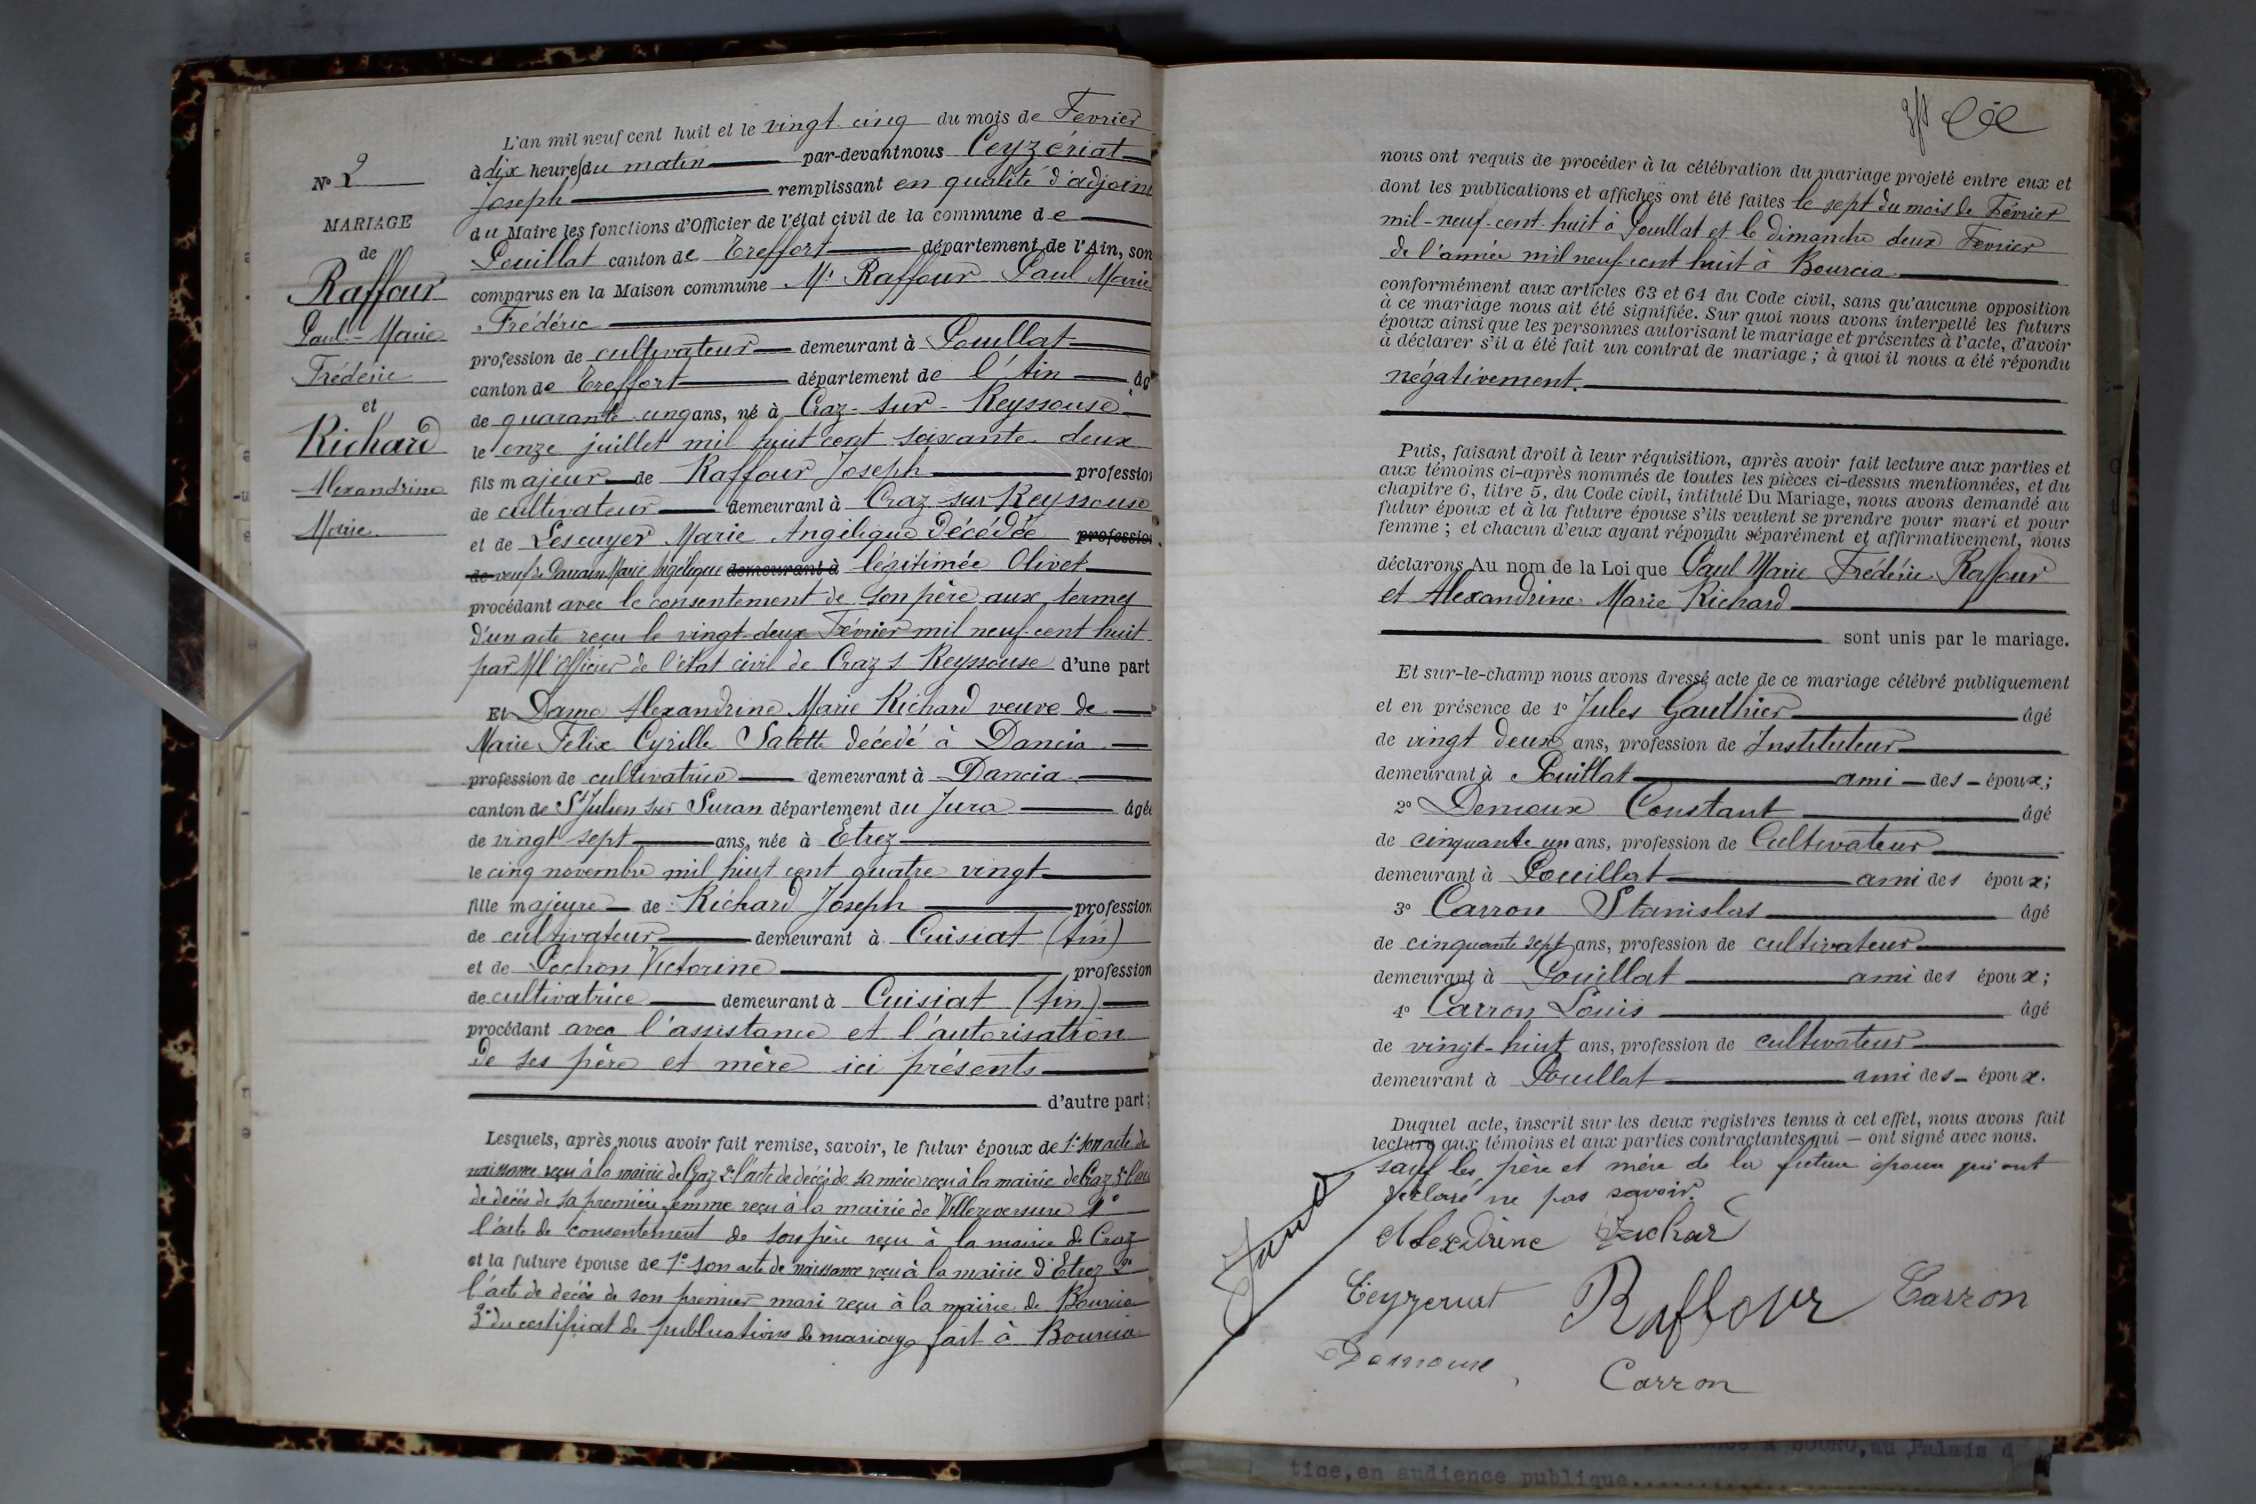 N° 2
MARIAGE
de
Raffour
Paul-Marie
Frédéric
et
Richard
Alexandrine
Marie
L'an mil neuf cent huit et le vingt cinq du mois de Fevrier
à dix heures du matin par-devant nous Ceyzériat
Joseph remplissant en qualité d'adjoint
du Maire les fonctions d'Officier de l'état civil de la commune de
Pouillat canton de Treffort département de l'Ain, son
comparus en la Maison commune Mr Raffour Paul Marie
Frédéric
profession de cultivateur demeurant à Pouillat
canton de Treffort département de l'Ain âg
de quarante cinq ans, né à Craz-sur-Reyssouse
le onze juillet mil huit cent soixante deux
fils majeur de Raffour Joseph profession
de cultivateur demeurant à Craz sur Reyssouse
et de Lescuyer Marie Angélique Décédée profession
de veuf de Marie Angélique demeurant à légitimée Olivet
procédant avec le consentement de son père aux termes
d'un acte reçu le vingt-deux Février mil neuf cent huit
par M l'officier de l'état civil de Craz s Reyssouse d'une part
Et Dame Alexandrine Marie Richard veuve de
Marie Félix Cyrille Salette décédé à Dancia
profession de cultivatrice demeurant à Dancia
canton de St Julien sur Suran département du Jura âgée
de vingt sept ans, née à Etrez
le cinq novembre mil huit cent quatre vingt
fille majeure de Richard Joseph profession
de cultivateur demeurant à Cuisiat (Ain)
et de Pochon Victorine profession
de cultivatrice demeurant à Cuisiat (Ain)
procédant avec l'assistance et l'autorisation
de ses père et mère ici présents
d'autre part;
Lesquels, après nous avoir fait remise, savoir, le futur époux de 1° son acte de
naissance reçu à la mairie de Craz 2° l'acte de décès de sa mère reçu à la mairie de Craz 3° l'acte
de décès de sa première femme reçu à la mairie de Villereversure 4°
l'acte de consentement de son père reçu à la mairie de Craz
et la future épouse de 1° son acte de naissance reçu à la mairie d'Etrez 2°
l'acte de décès de son premier mari reçu à la mairie de Bourcia
3° du certificat de publications de mariage fait à Bourcia
nous ont requis de procéder à la célébration du mariage projeté entre eux et
dont les publications et affiches ont été faites le sept du mois de Février
mil-neuf-cent-huit à Pouillat et le dimanche deux Fevrier
de l'année mil neuf cent huit à Bourcia
conformément aux articles 63 et 64 du Code civil, sans qu'aucune opposition
à ce mariage nous ait été signifiée. Sur quoi nous avons interpellé les futurs
époux ainsi que les personnes autorisant le mariage et présentes à l'acte, d'avoir
à déclarer s'il a été fait un contrat de mariage; à quoi il nous a été répondu
négativement.
Puis, faisant droit à leur réquisition, après avoir fait lecture aux parties et
aux témoins ci-après nommés de toutes les pièces ci-dessus mentionnées, et du
chapitre 6, titre 5, du Code civil, intitulé Du Mariage, nous avons demandé au
futur époux et à la future épouse s'ils veulent se prendre pour mari et pour
femme; et chacun d'eux ayant répondu séparément et affirmativement, nous
déclarons Au nom de la Loi que Paul Marie Frédéric Raffour
et Alexandrine Marie Richard
sont unis par le mariage.
Et sur-le-champ nous avons dressé acte de ce mariage célébré publiquement
et en présence de 1° Jules Gauthier âgé
de vingt deux ans, profession de Instituteur
demeurant à Pouillat ami des époux;
2° Demoux Constant âgé
de cinquante un ans, profession de Cultivateur
demeurant à Pouillat ami des époux;
3° Carron Stanislas âgé
de cinquante sept ans, profession de cultivateur
demeurant à Pouillat ami des époux;
4° Carron Louis âgé
de vingt-huit ans, profession de cultivateur
demeurant à Pouillat ami des époux.
Duquel acte, inscrit sur les deux registres tenus à cet effet, nous avons fait
lecture aux témoins et aux parties contractantes qui ont signé avec nous.
sauf les père et mère de la future épouse qui ont
déclaré ne pas savoir.
Alexdrine Richard
Ceyzeriat Raffour Carron
Demoux
Carron
au Palais d
tice, en audience publique